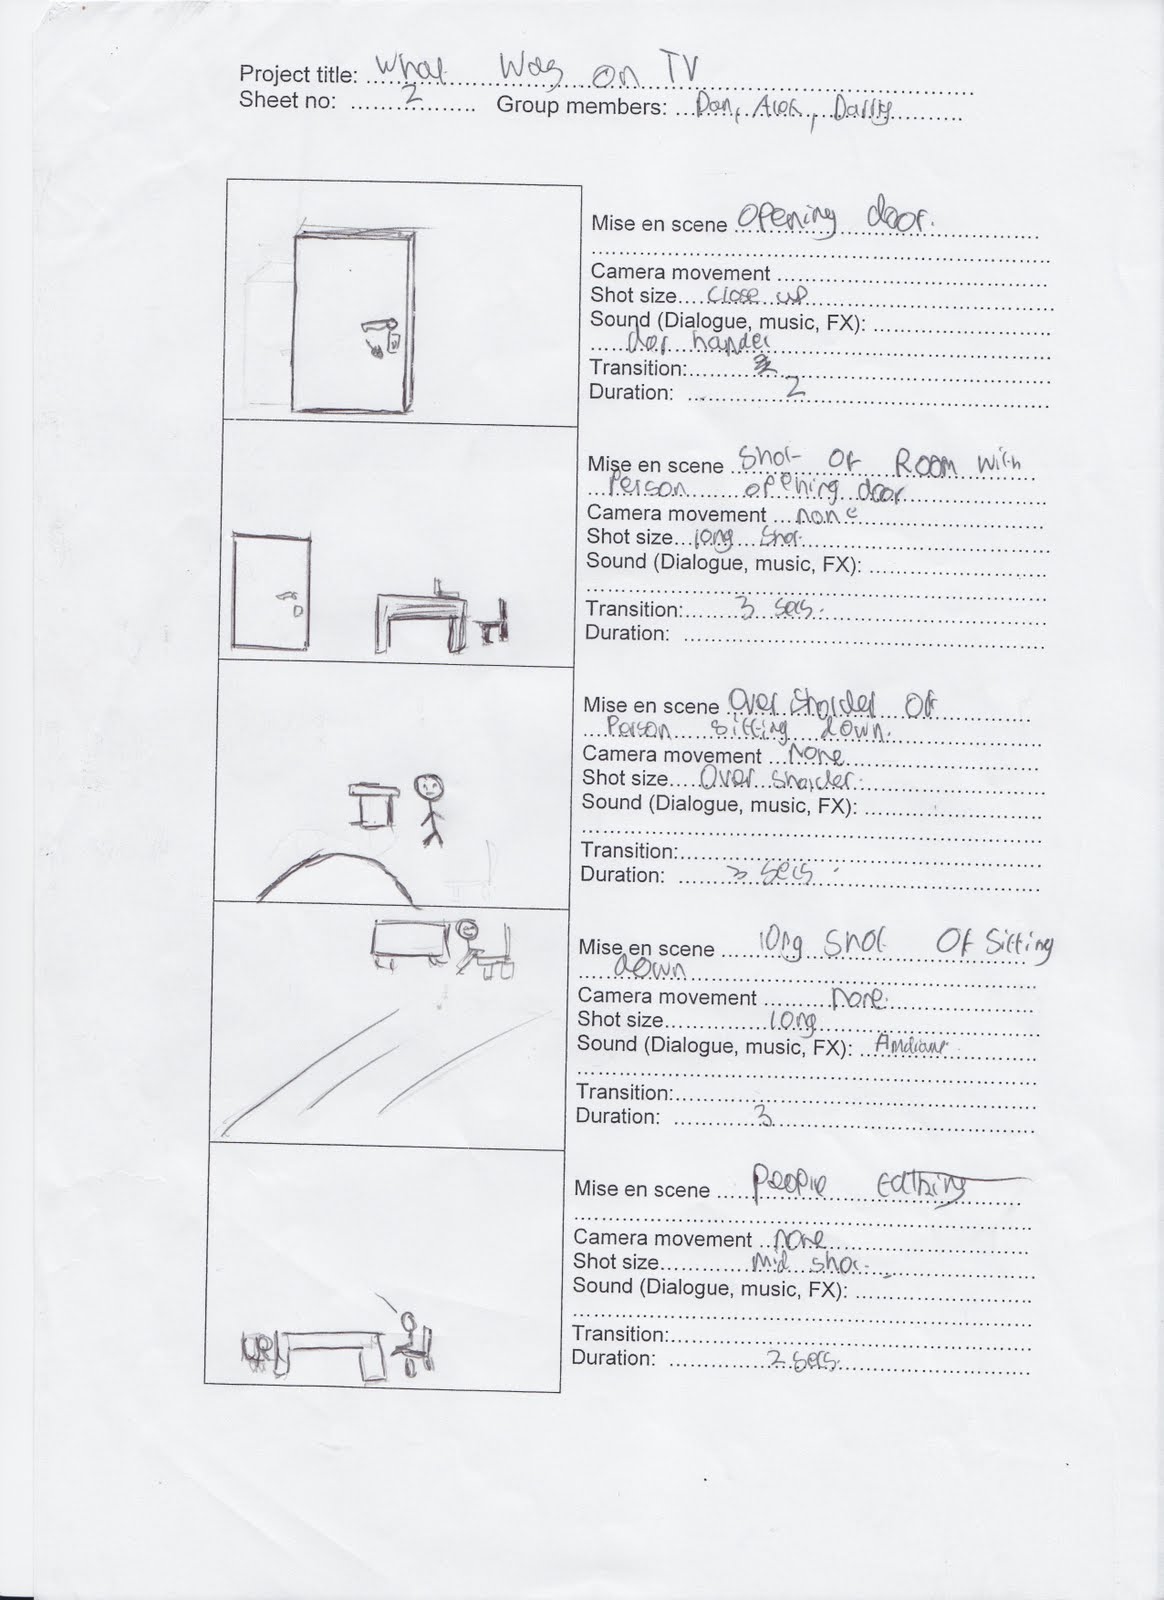 Project title: What Was on TV
Sheet no: 2 Group members: Dan, Alex, Darry
Mise en scene opening door.
Camera movement
Shot size close up
Sound (Dialogue, music, FX):
dor handel
Transition:
Duration: 2
Mise en scene Shot of Room with
Person opening door
Camera movement none
Shot size long shot
Sound (Dialogue, music, FX):
Transition: 3 secs.
Duration:
Mise en scene Over Sholder of
Person sitting down.
Camera movement none
Shot size Over sholder.
Sound (Dialogue, music, FX):
Transition:
Duration: 3 secs
Mise en scene long shot of sitting
down
Camera movement none.
Shot size long
Sound (Dialogue, music, FX):
Transition:
Duration: 3
Mise en scene People
Camera movement none
Shot size Mid shot
Sound (Dialogue, music, FX):
Transition:
Duration: 2 secs.